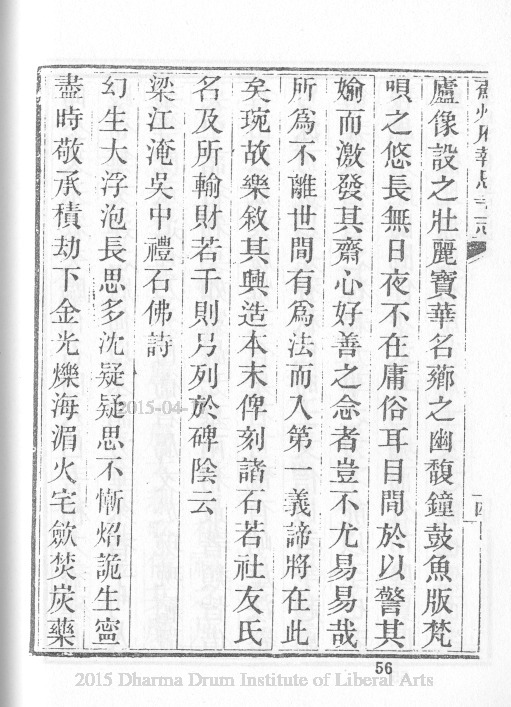 蘇州府報恩寺志
十四
廬像設之壯麗寶華名薌之幽馥鐘鼓魚版梵
唄之悠長無日夜不在庸俗耳目間於以警其
媮而激發其齋心好善之念者豈不尤易易哉
所爲不離世間有爲法而入第一義諦將在此
矣琬故樂敘其興造本末俾刻諸石若社友氏
名及所輸財若干則另列於碑陰云
梁江淹吳中禮石佛詩
幻生大浮泡長思多沈疑疑思不慚炤詭生寍
盡時敬承積劫下金光爍海湄火宅歛焚炭藥
2015-04-
56
2015 Dharma Drum Institute of Liberal Arts